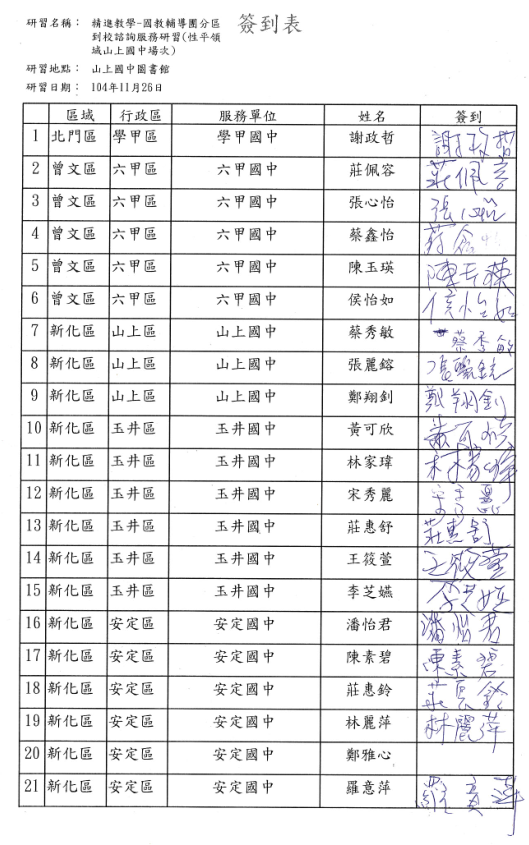 簽到表
研習名稱： 精進教學-國教輔導團分區
到校諮詢服務研習(性平領
域山上國中場次)
研習地點： 山上國中圖書館
研習日期： 104年11月26日
區域 行政區 服務單位 姓名 簽到
1 北門區 學甲區 學甲國中 謝政哲 謝政哲
2 曾文區 六甲區 六甲國中 莊佩容 莊佩容
3 曾文區 六甲區 六甲國中 張心怡 張心怡
4 曾文區 六甲區 六甲國中 蔡鑫怡
5 曾文區 六甲區 六甲國中 陳玉瑛 陳玉瑛
6 曾文區 六甲區 六甲國中 侯怡如 侯怡如
7 新化區 山上區 山上國中 蔡秀敏 蔡秀敏
8 新化區 山上區 山上國中 張麗鎔
9 新化區 山上區 山上國中 鄭翔釗 鄭翔釗
10 新化區 玉井區 玉井國中 黃可欣 黃可欣
11 新化區 玉井區 玉井國中 林家瑋
12 新化區 玉井區 玉井國中 宋秀麗
13 新化區 玉井區 玉井國中 莊惠舒 莊惠舒
14 新化區 玉井區 玉井國中 王筱萱 王筱萱
15 新化區 玉井區 玉井國中 李芝嬿
16 新化區 安定區 安定國中 潘怡君 潘怡君
17 新化區 安定區 安定國中 陳素碧 陳素碧
18 新化區 安定區 安定國中 莊惠鈴 莊惠鈴
19 新化區 安定區 安定國中 林麗萍 林麗萍
20 新化區 安定區 安定國中 鄭雅心
21 新化區 安定區 安定國中 羅意萍 羅意萍